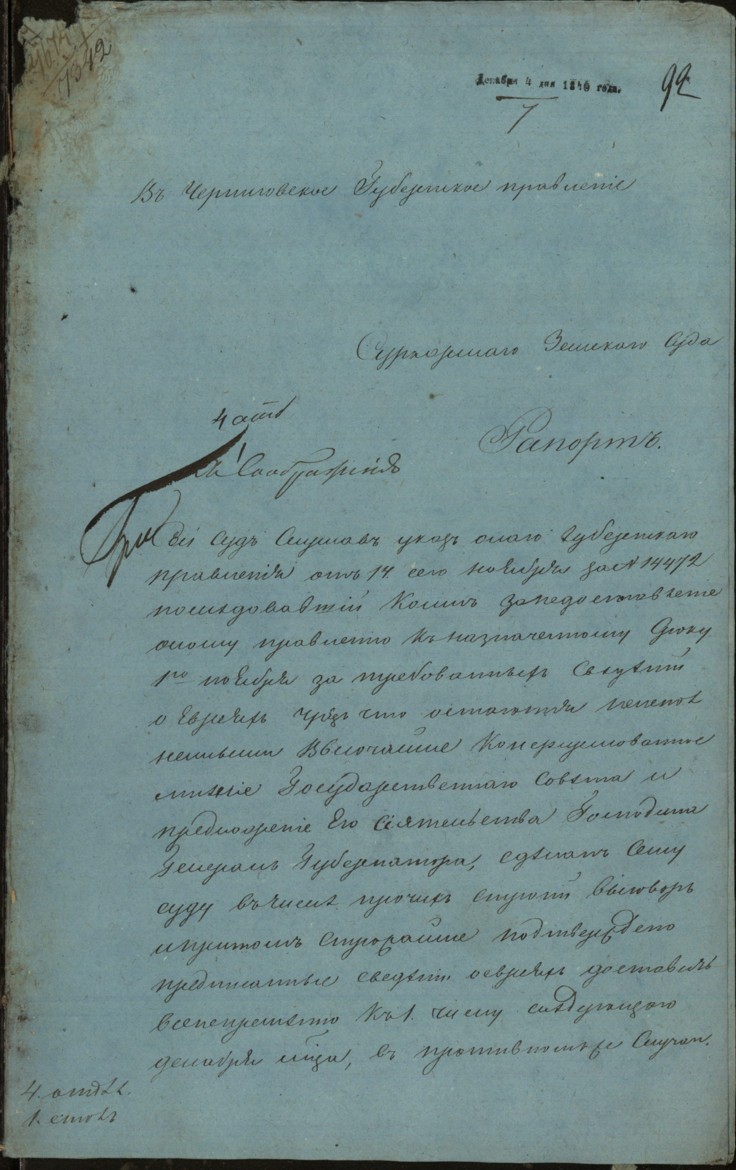 1342
Декабря 4 дня 1840 года.
7
92
Въ Черниговское Губернское правленіе
Суражскаго Земскаго Суда
4 отд
Рапортъ.
Къ Соображенія
Сей Судъ Слушавъ указъ онаго Губернскаго
правленія отъ 14 сего ноября за № 14472
последовавшій коимъ занедоставленіе
оному правленію къ назначенному Сроку
1го ноября за требованныхъ Свѣдѣній
о Евреяхъ чрезъ что остаются неиспол
ненными Высочайше Конфирмованное
мнѣніе Государственнаго Совѣта и
предложеніе Его Сіятельства Господина
Генералъ Губернатора, сдѣланъ Сему
суду въчислѣ прочихъ строгій выговоръ
ипритомъ строжайше подтверждено
предписанные сведѣнія оевреяхъ доставить
всенепремѣнно къ 1. числу следующаго
декабря мца, въ противномъ же Случаи.
4. отдѣл.
1. столъ